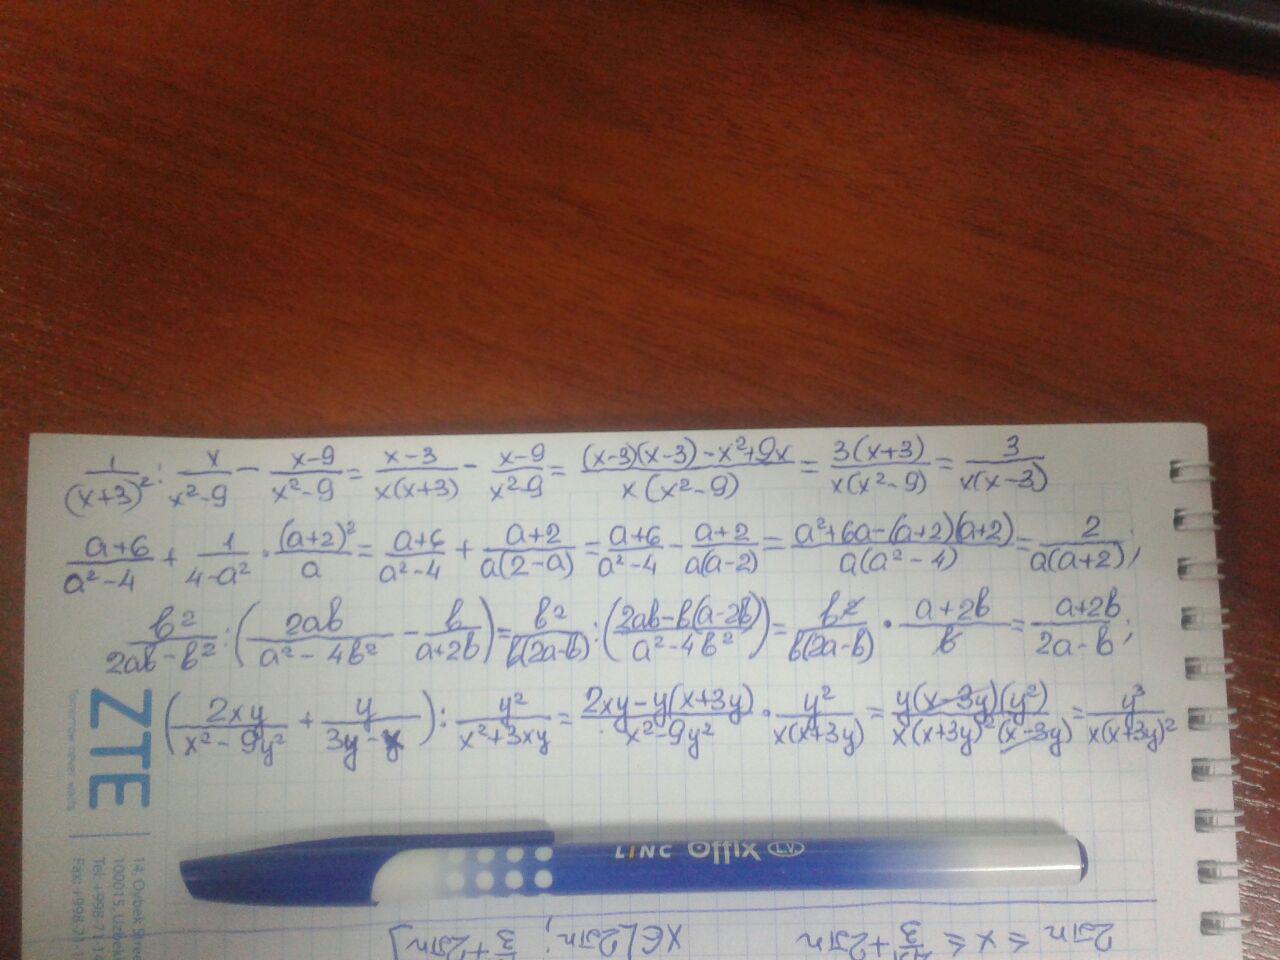 1/(x+3)² : x/(x²-9) - (x-9)/(x²-9) = (x-3)/(x(x+3)) - (x-9)/(x²-9) = ((x-3)(x-3)-x²+9x)/(x(x²-9)) = 3(x+3)/(x(x²-9)) = 3/(x(x-3))
(a+6)/(a²-4) + 1/(4-a²) · (a+2)²/a = (a+6)/(a²-4) + (a+2)/(a(2-a)) = (a+6)/(a²-4) - (a+2)/(a(a-2)) = (a²+6a-(a+2)(a+2))/(a(a²-4)) = 2/(a(a+2));
b²/(2ab-b²) : (2ab/(a²-4b²) - b/(a+2b)) = b²/(b(2a-b)) : ((2ab-b(a-2b))/(a²-4b²)) = b²/(b(2a-b)) · (a+2b)/b = (a+2b)/(2a-b);
(2xy/(x²-9y²) + y/(3y-x)) : y²/(x²+3xy) = (2xy-y(x+3y))/(x²-9y²) · y²/(x(x+3y)) = y(x-3y)(y²)/(x(x+3y)²(x-3y)) = y³/(x(x+3y)²)
ZTE
Tomorrow never waits
14, Oybek Stree
100015, Uzbeki
Tel: +998-71-1
Fax: +998-71-
LINC Offix LV
2πn ≤ x ≤ π/3+2πn
x∈[2πn; π/3+2πn]